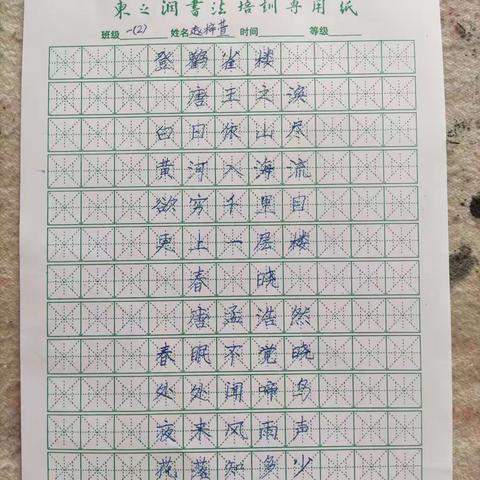 東之润書法培訓専用紙
班级 一(2) 姓名 赵梓萱 时间 等级
登鹳雀楼
唐王之涣
白日依山尽
黄河入海流
欲穷千里目
更上一层楼
春晓
唐孟浩然
春眠不觉晓
处处闻啼鸟
夜来风雨声
花落知多少